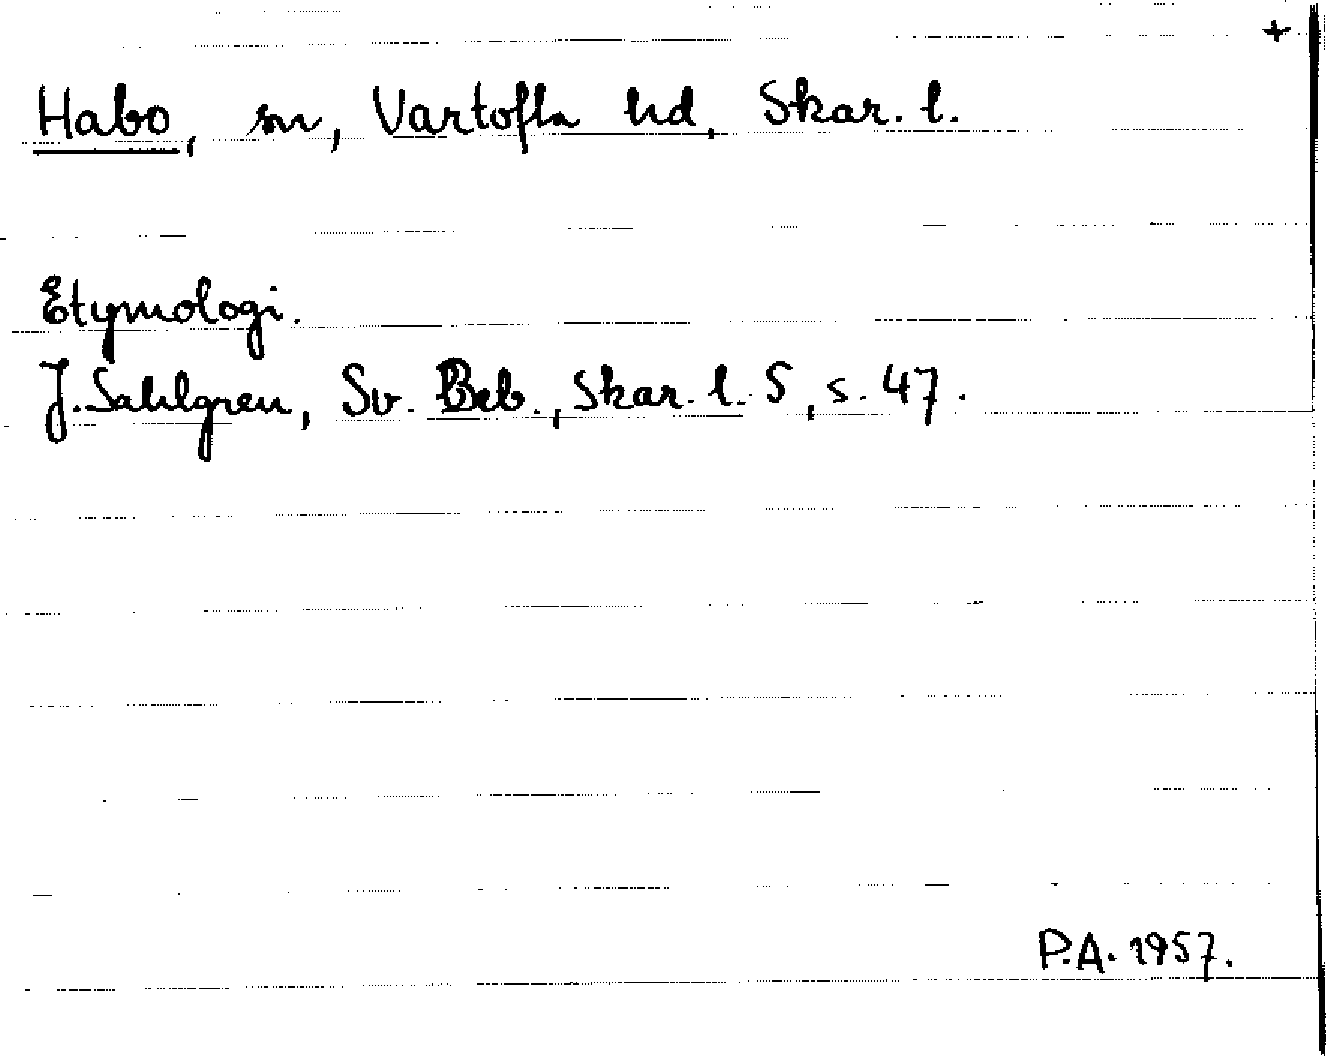 +
Habo, sn, Vartofta hd, Skar. l.
Etymologi.
J. Sahlgren, Sv. Beb., Skar. l. 5, s. 47.
P.A. 1957.